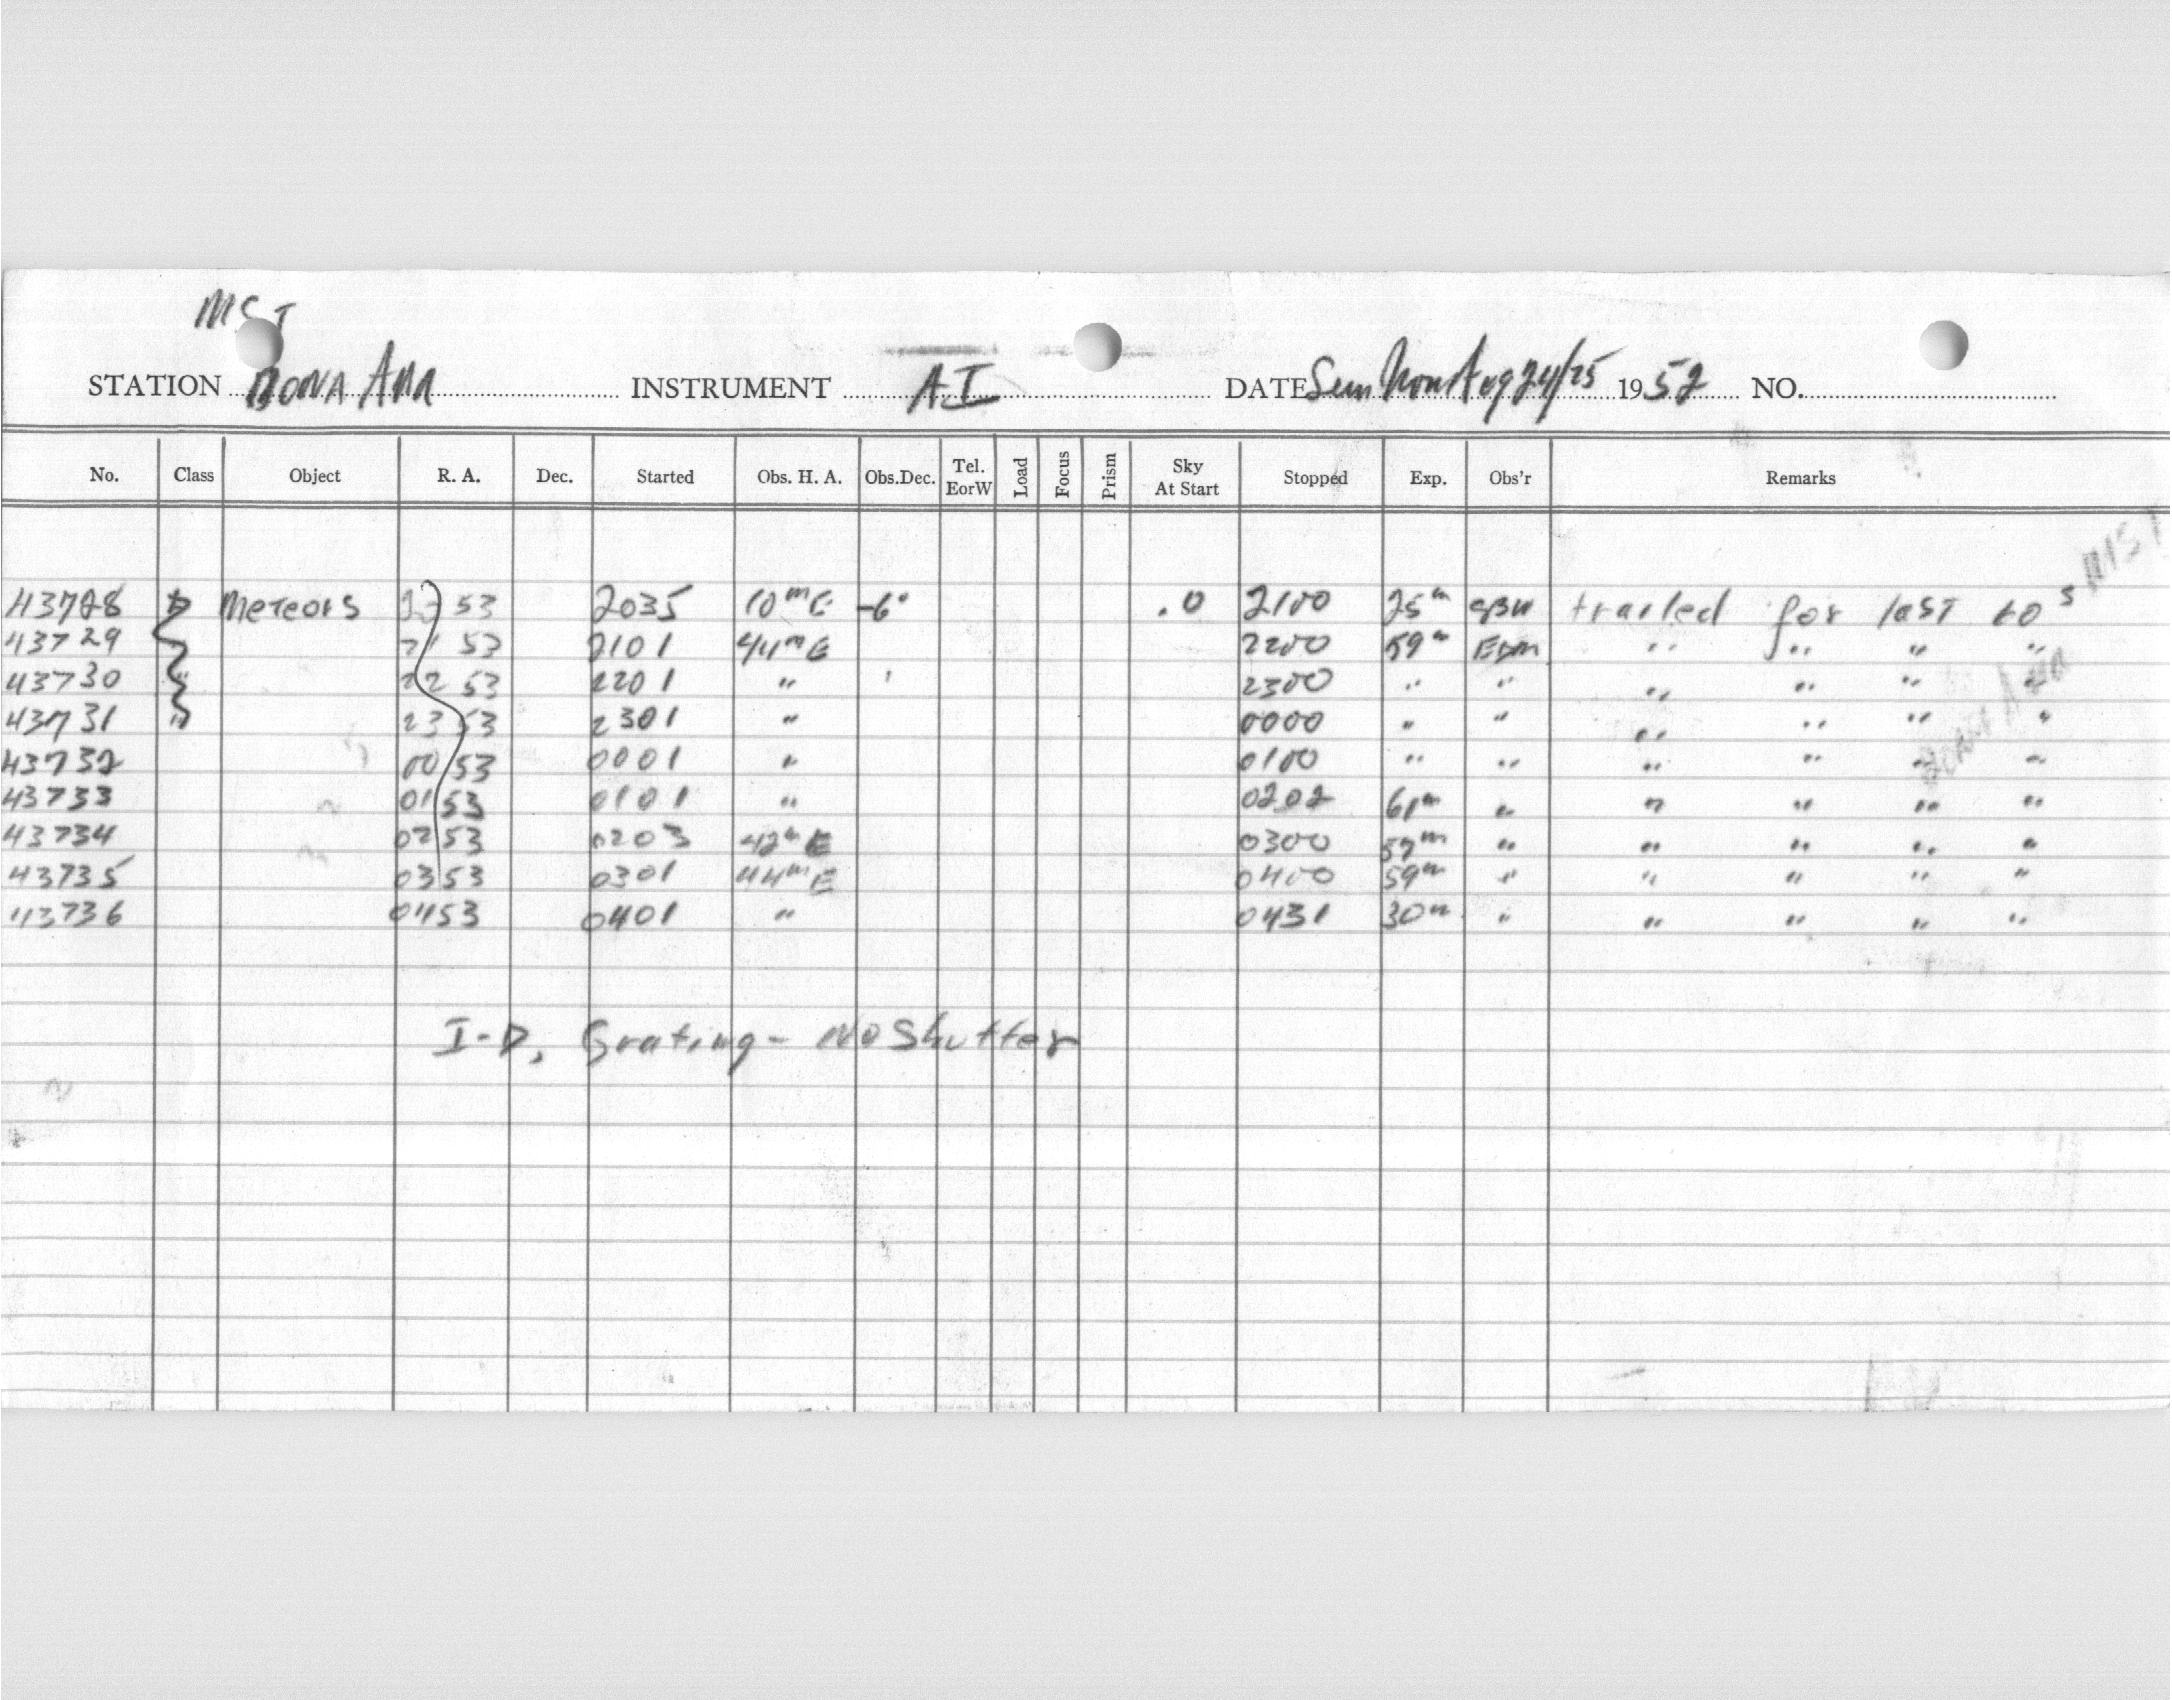 MST
STATION DONA ANA INSTRUMENT AI DATE Sun Mon Aug 24/25 1952 NO.
No. Class Object R. A. Dec. Started Obs. H. A. Obs.Dec. Tel. EorW Load Focus Prism Sky At Start Stopped Exp. Obs'r Remarks
MST
43728 D Meteors 53 2035 10m E -6° .0 2100 25m trailed for last 60 s
43729 21 53 2101 44m E 2200 59m EPM " " " "
43730 " 22 53 2201 " 2300 " " " " " "
43731 " 23 53 2301 " 0000 " " " " " "
43732 00 53 0001 " 0100 " " " " " "
43733 01 53 0101 " 0202 61m " " " " "
43734 02 53 0203 42m E 0300 57m " " " " "
43735 03 53 0301 44m E 0400 59m " " " " "
43736 04 53 0401 " 0431 30m " " " " "
Dona Ana
I-D, Grating - No Shutter